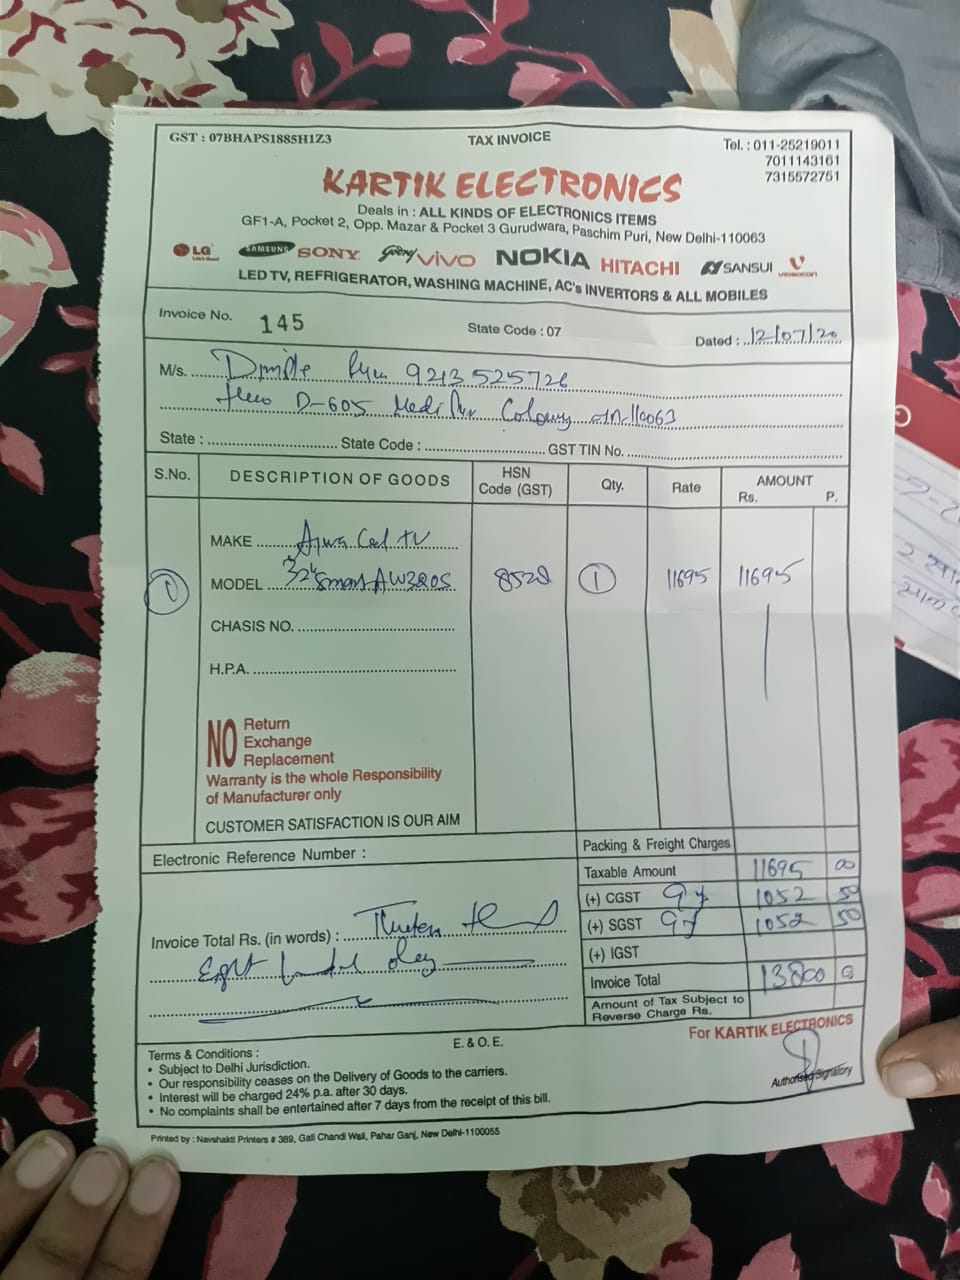 GST : 07BHAPS1885H1Z3
TAX INVOICE
Tel. : 011-25219011
7011143161
7315572751
KARTIK ELECTRONICS
Deals in : ALL KINDS OF ELECTRONICS ITEMS
GF1-A, Pocket 2, Opp. Mazar & Pocket 3 Gurudwara, Paschim Puri, New Delhi-110063
LG SAMSUNG SONY Godrej vivo NOKIA HITACHI SANSUI VIDEOCON
LED TV, REFRIGERATOR, WASHING MACHINE, AC's INVERTORS & ALL MOBILES
Invoice No. 145 State Code : 07 Dated : 12/07/20
M/s. 9213525726
D-605 Colony 110063
State : State Code : GST TIN No.
S.No. DESCRIPTION OF GOODS HSN Code (GST) Qty. Rate AMOUNT Rs. P.
MAKE Aiwa Led TV
1 MODEL 32" Smart AW320S 8528 1 11695 11695
CHASIS NO.
H.P.A.
NO Return
Exchange
Replacement
Warranty is the whole Responsibility
of Manufacturer only
CUSTOMER SATISFACTION IS OUR AIM
Electronic Reference Number :
Packing & Freight Charges
Taxable Amount 11695 00
(+) CGST 9% 1052 50
(+) SGST 9% 1052 50
(+) IGST
Invoice Total 13800 0
Amount of Tax Subject to
Reverse Charge Rs.
Invoice Total Rs. (in words) :
Eight hundred only
E. & O.E.
For KARTIK ELECTRONICS
Authorised Signatory
Terms & Conditions :
• Subject to Delhi Jurisdiction.
• Our responsibility ceases on the Delivery of Goods to the carriers.
• Interest will be charged 24% p.a. after 30 days.
• No complaints shall be entertained after 7 days from the receipt of this bill.
Printed by : Navshakti Printers # 389, Gali Chandi Wali, Pahar Ganj, New Delhi-1100055